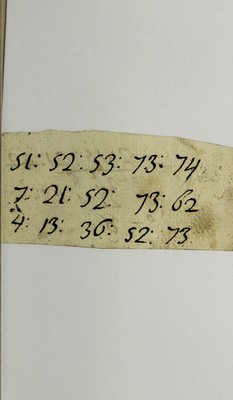 51: 52: 53: 73: 74
7: 21: 52: 73: 62
4: 13: 36: 52: 73